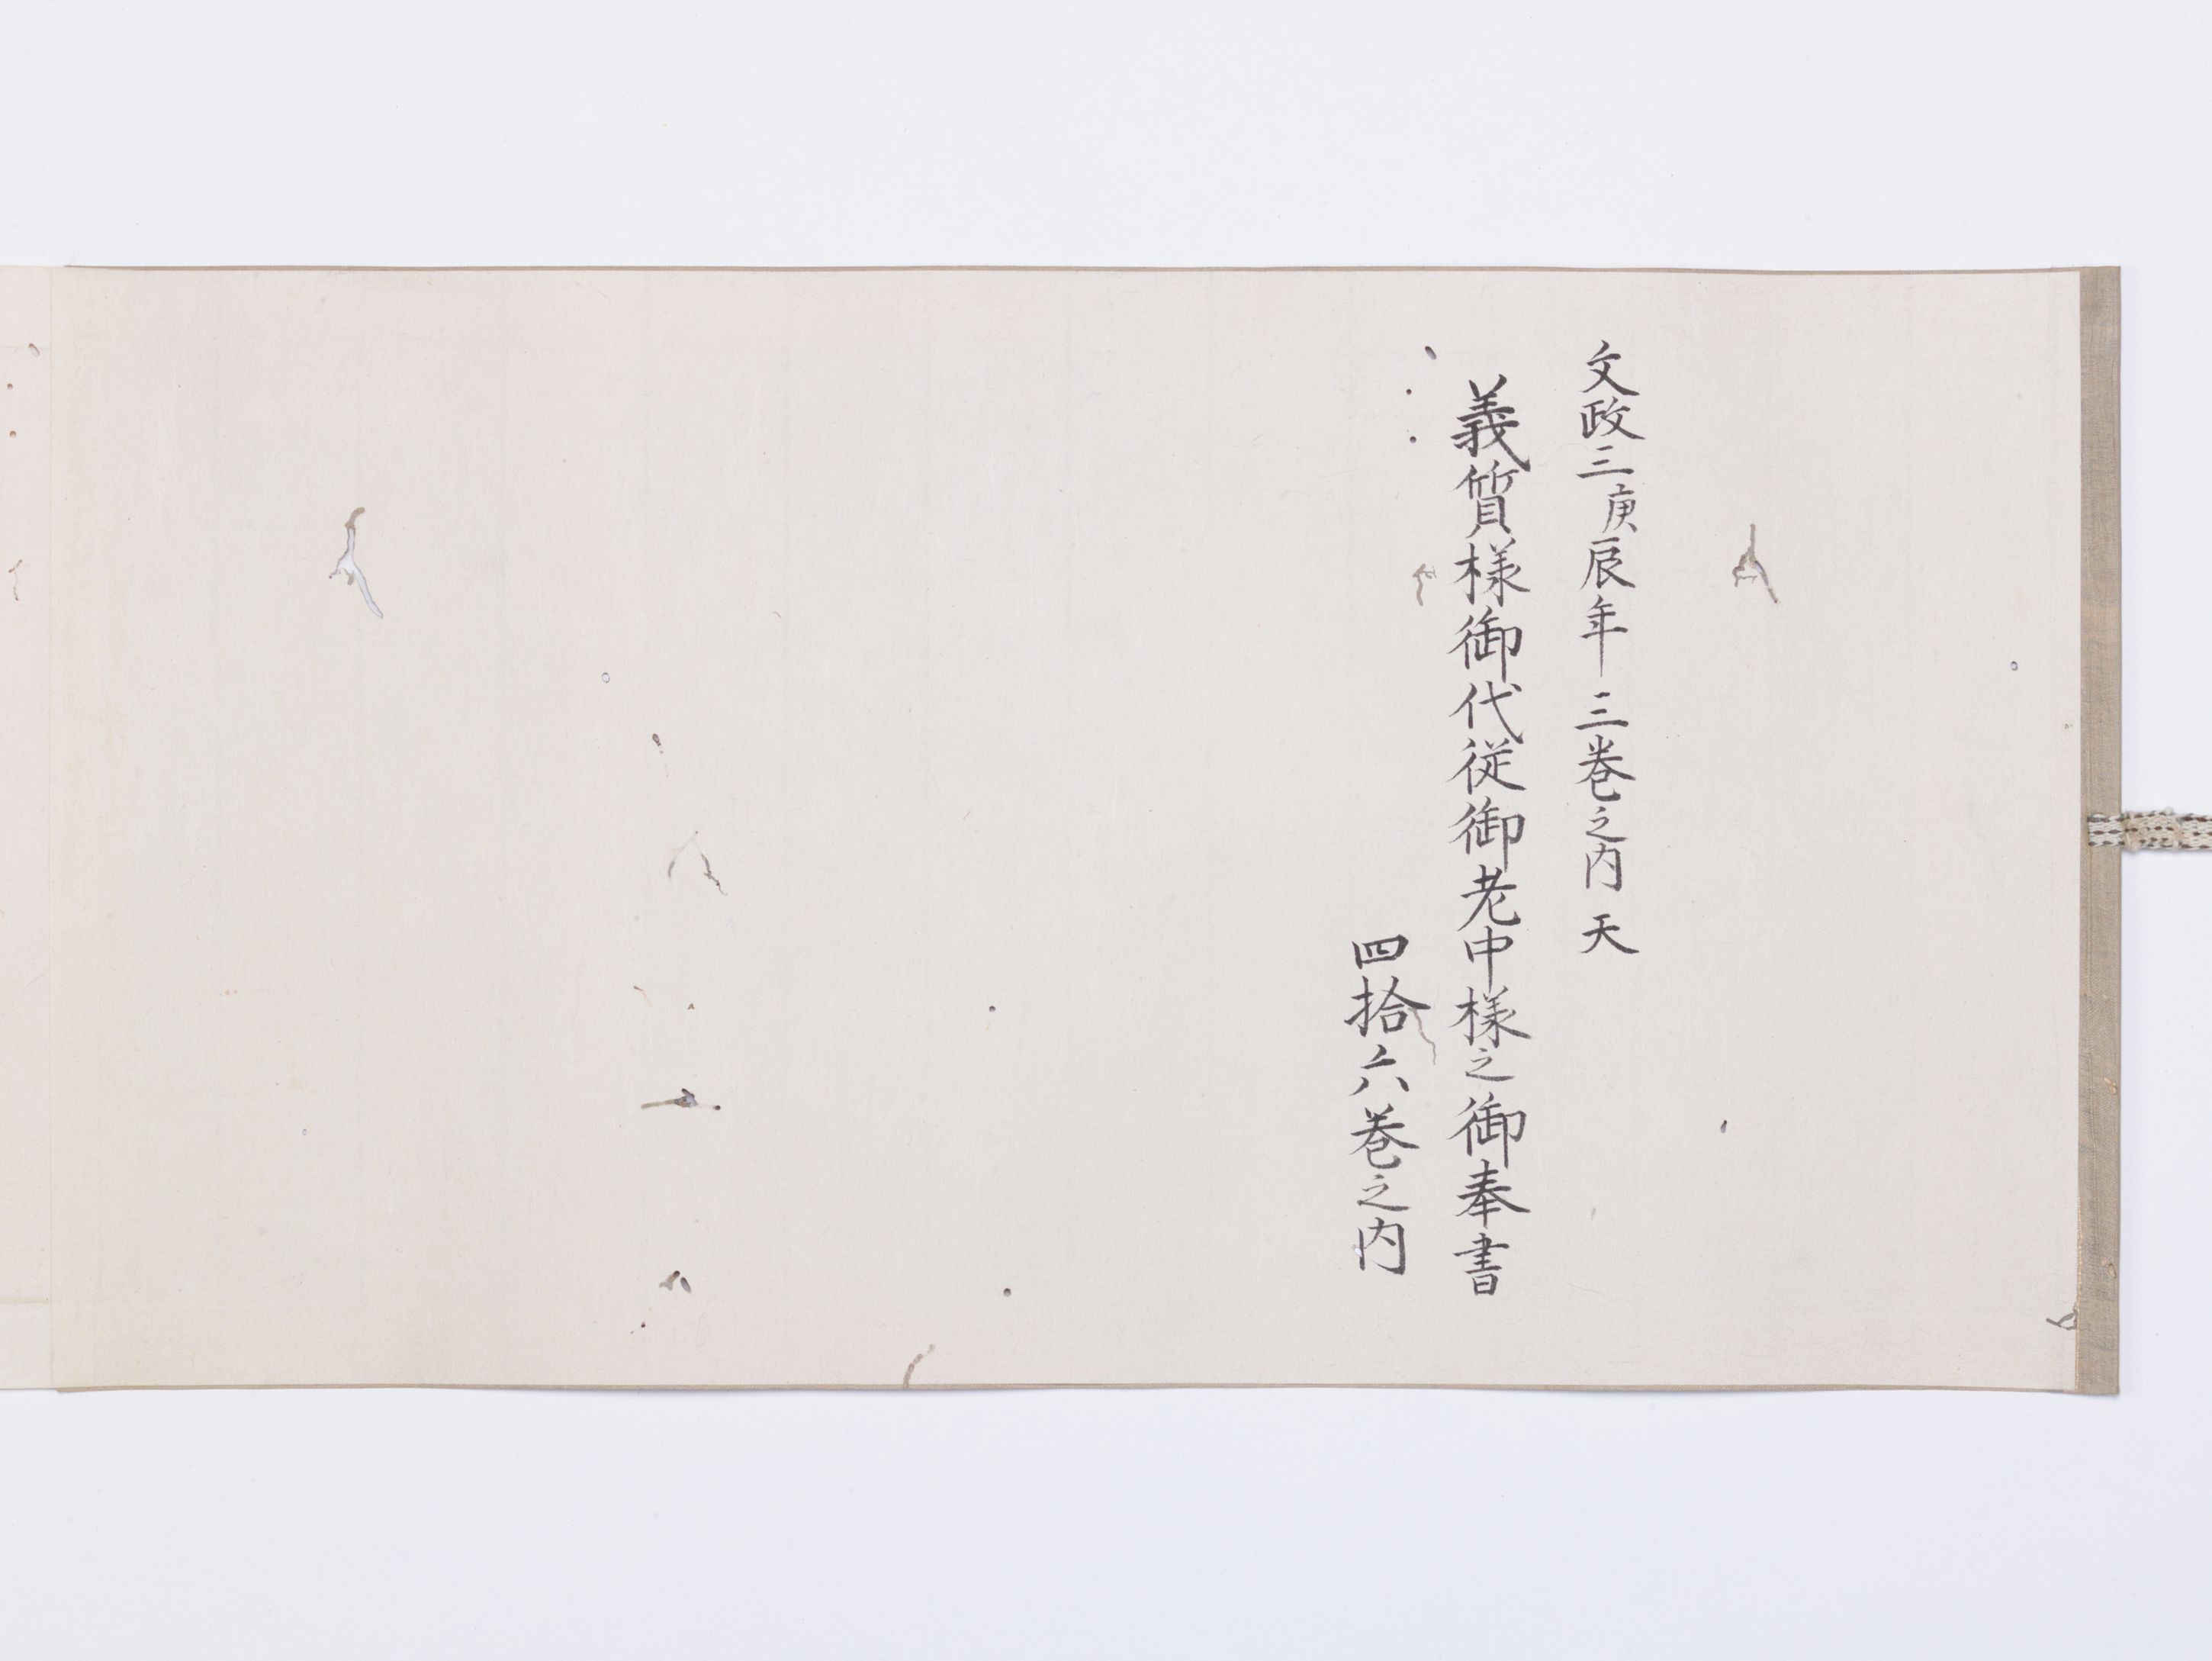 文政三庚辰年 三巻之内 天
義質様御代従御老中様之御奉書
四拾六巻之内